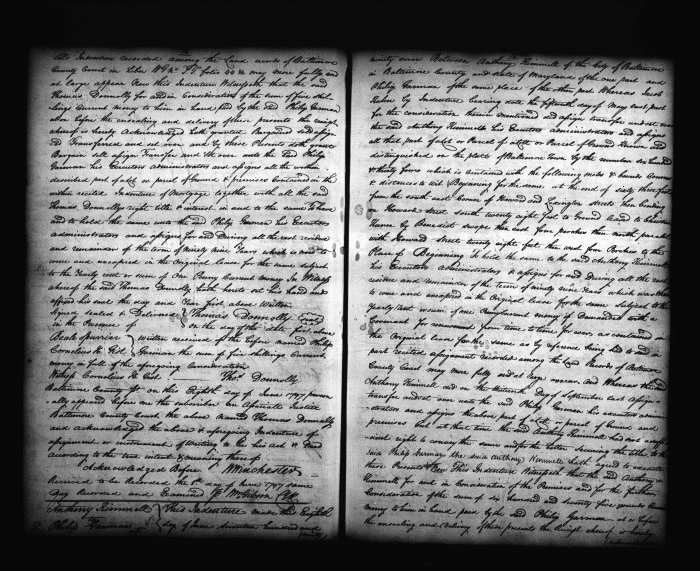 This Indenture recorded among the Land records of Baltimore
County Court in Liber WG No folio may more fully and
at large appear Now this Indenture Witnesseth that the said
Thomas Donnelly for and in Consideration of the sum of five shil-
lings Current money to him in hand paid by the sd Philip German
at or before the ensealing and delivery of these presents the receipt
whereof is hereby Acknowledged hath granted Bargained sold assign
ed Transferred and set over and by these Presents doth grant
Bargain sell assign Transfer and set over unto the sd Philip
German his Executors administrators and assigns all the within
described part of a lot or parcel of Ground & premises Contained in the
within recited Indenture of Mortgage together with all the said
Thomas Donnelly right title & interest in and to the same To have
and to hold the same unto the sd Philip German his Executors
administrators and assigns for and During all the rest residue
and remainder of the term of ninety nine Years which is now to
come and unexpired in the Original Lease for the same subject
to the Yearly rent or sum of One Penny Current money In Witness
whereof the sd Thomas Donnelly hath hereto set his hand and
affixed his seal the day and Year first above Written
Signed Sealed & Delivered Thomas Donnelly
in the Presence of on the day of the date first above
Beale Spurrier written received of the before named Philip
Cornelius H. Gist German the sum of five shillings Current
money in full of the aforegoing Consideration
Cornelius H Gist Thos Donnelly
Baltimore County Sct on this Eighth day of June 1797 person
ally appeared before me the subscriber an Associate Justice
Baltimore County Court, the above named Thomas Donnelly
and acknowledged the above & aforegoing Indenture of
assignment or instrument of Writing to be his act & Deed
according to the true intent & meaning thereof
Acknowledged Before J Winchester
Received to be Recorded the 8th day of June 1797 same
Day Recorded and Examined Wm Gibson Clk
Anthony Kimmell This Indenture made this Eighth
Philip German day of June seventeen hundred and
ninety
ninety seven Between Anthony Kimmell of the City of Baltimore
in Baltimore County and State of Maryland of the one part and
Philip German of the same place of the other part Whereas Jacob
Hahn by Indenture bearing date the fifteenth day of May last past
for the consideration therein mentioned did assign transfer and set over
the said Anthony Kimmell his Executors administrators and assigns
all that part of a lot or Parcel of Ground
distinguished on the platt of Baltimore Town by the number six hundred
& thirty four which is contained with the following metes & bounds Courses
& distances to wit Beginning for the same at the end of sixty three feet
from the south east Corner of Howard and Lexington streets then binding
on Howard street south twenty eight feet to Ground leased to
Hanna by Benedict Swope then east four perches then north parallel
with Howard Street twenty eight feet then west four Perches to the
Place of Beginning To hold the same to the said Anthony Kimmell
his Executors administrators & assigns for and During all the rest
residue and remainder of the term of ninety nine Years which was then
to come and unexpired in the Original Lease for the same Subject to the
Yearly rent or sum of one Peppercorn if Demanded with a
Covenant for renewment from time to time for ever as contained in
the Original Lease for the same as by reference being had to said in
part recited assignment recorded among the Land Records of Baltimore
County Court may more fully and at large appear and Whereas the said
Anthony Kimmell did on the thirteenth Day of September last assign
transfer and set over unto the said Philip German his executors admini
strators and assigns the above part of a lot or parcel of Ground and
premises but at that time the said Anthony Kimmell had not a suffi
cient right to convey the same and for the better securing the title to the
said Philip German the said Anthony Kimmell hath agreed to execute
these Presents Now This Indenture Witnesseth that the said Anthony
Kimmell for and in Consideration of the Premises and for the further
Consideration of the sum of six hundred and seventy five pounds Current
money to him in hand paid by the said Philip German at or before
the ensealing and delivery of these presents the Receipt whereof is hereby